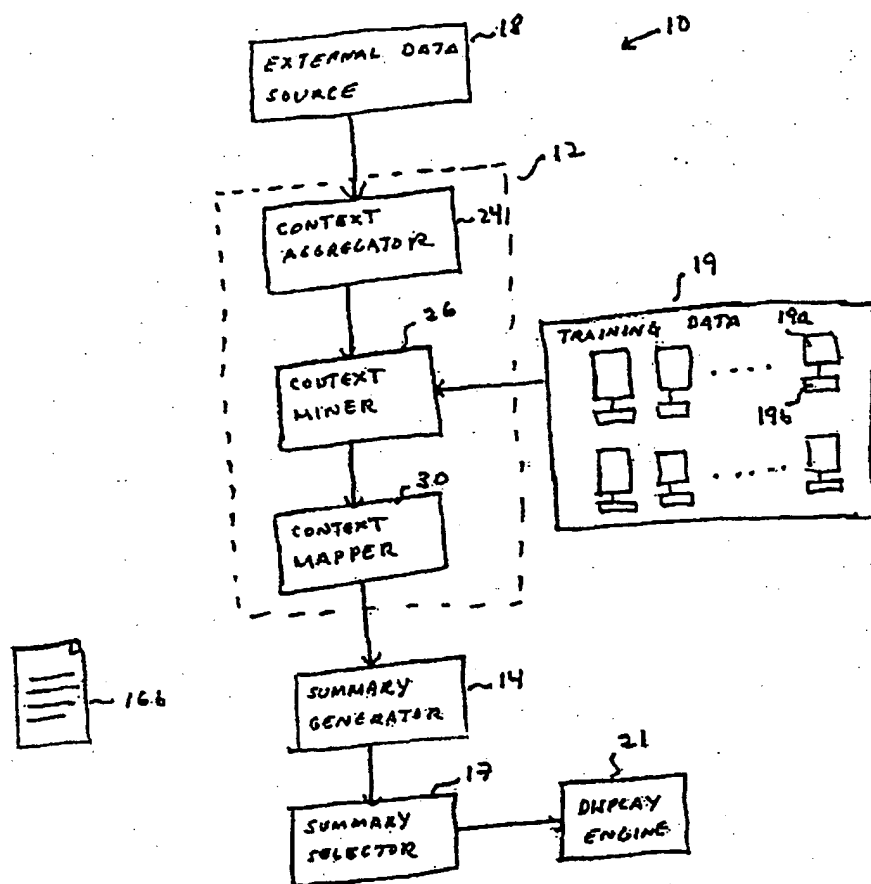 18
10
EXTERNAL DATA
SOURCE
12
CONTEXT
AGGREGATOR
24
26
CONTEXT
MINER
19
TRAINING DATA
19a
19b
30
CONTEXT
MAPPER
16b
SUMMARY
GENERATOR
14
17
SUMMARY
SELECTOR
21
DISPLAY
ENGINE